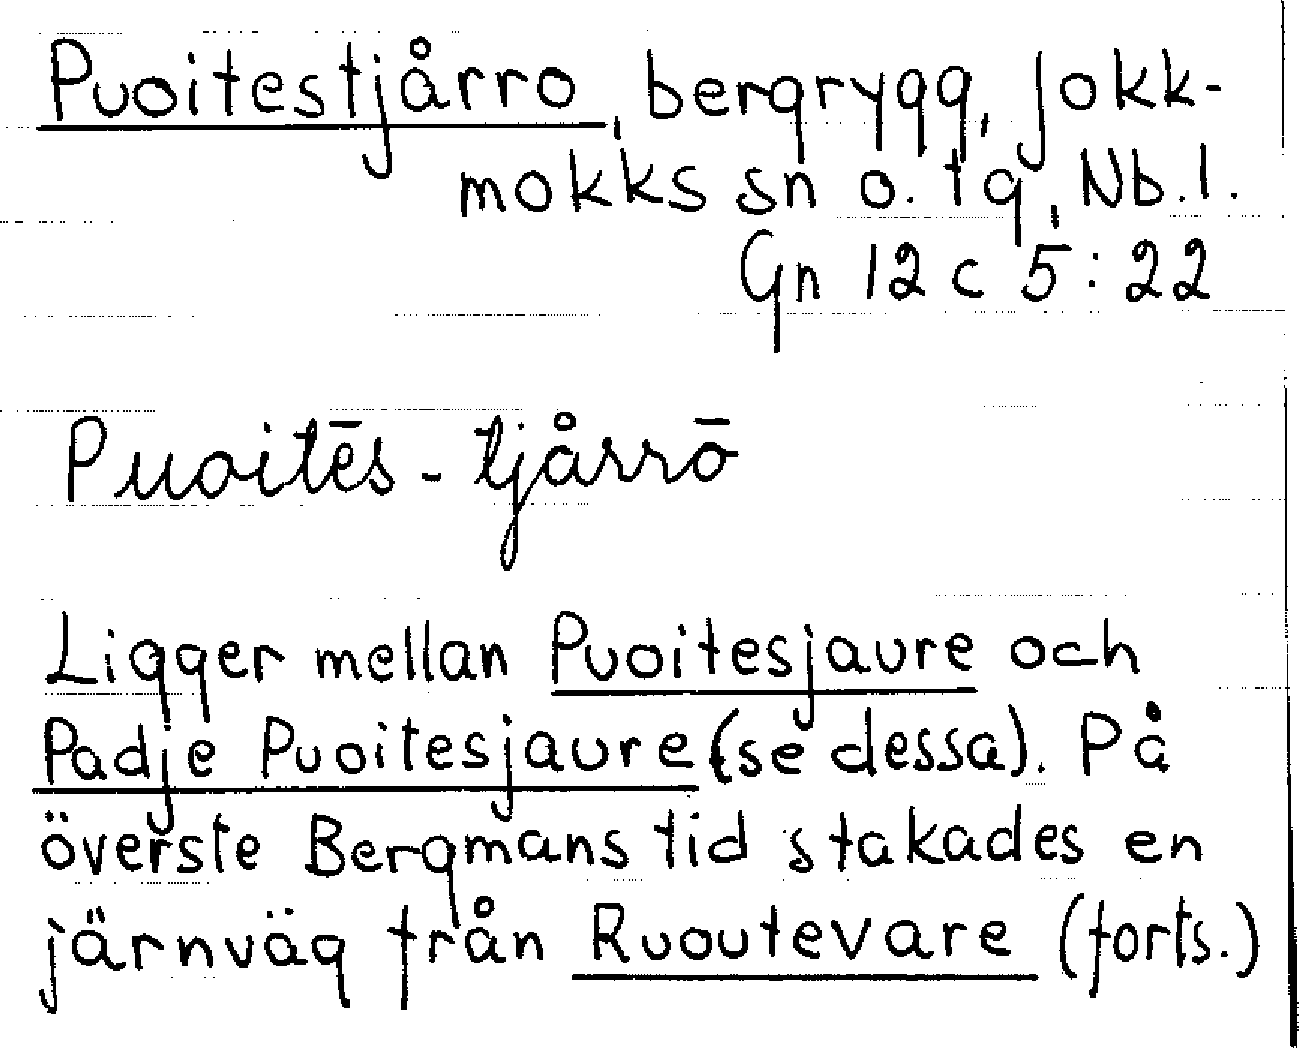 Puoitestjårro, bergrygg, Jokk-
mokks sn o. tg, Nb. l.
Gn 12 c 5:22
Puoitēs-tjårrō
Ligger mellan Puoitesjaure och
Padje Puoitesjaure (se dessa). På
överste Bergmans tid stakades en
järnväg från Ruoutevare (forts.)